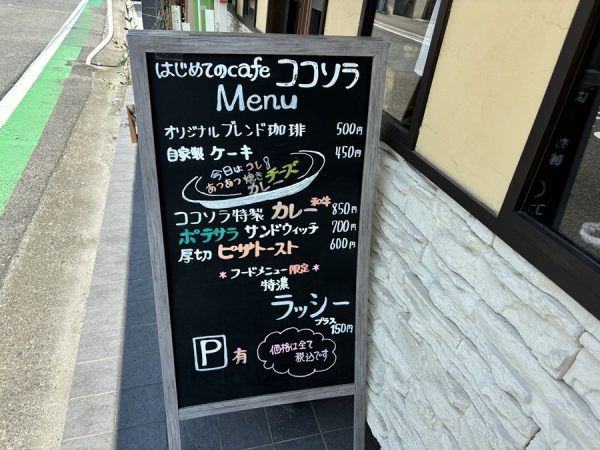 はじめてのcafe ココソラ
Menu
オリジナルブレンド珈琲 500円
自家製 ケーキ 450円
今日はコレ!
あつあつ焼きチーズ
カレー
ココソラ特製 カレー 和牛 850円
ポテサラ サンドウィッチ 700円
厚切 ピザトースト 600円
*フードメニュー限定*
特濃
ラッシー
プラス150円
P 有
価格は全て
税込です